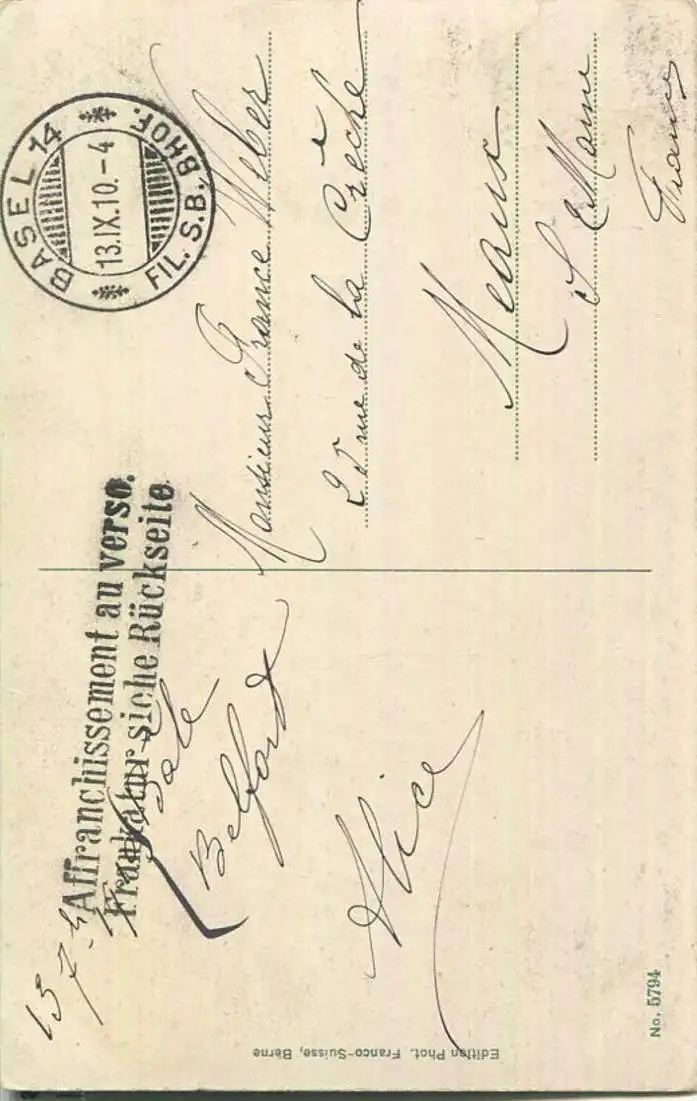 BASEL 14
13.IX.10.-4
FIL. S.B. BHOF.
Affranchissement au verso.
Frankatur siehe Rückseite.
13-7-
Bale
Belfort
Alice
Monsieur France Weber
rue de la Crèche
Meaux
S et Marne
France
Edition Phot. Franco-Suisse, Berne
No. 5794